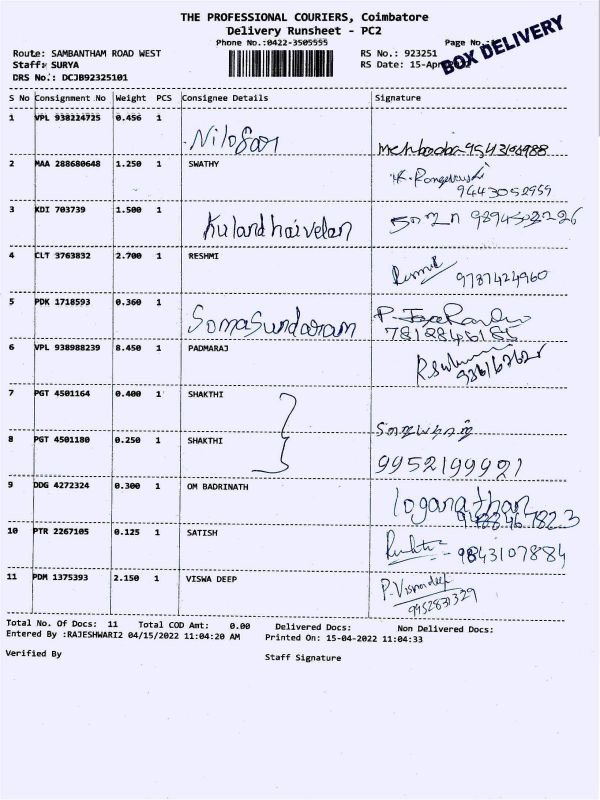 THE PROFESSIONAL COURIERS, Coimbatore
Delivery Runsheet - PC2
Phone No.:0422-3505555
Page No.
BOX DELIVERY
Route: SAMBANTHAM ROAD WEST
RS No.: 923251
Staff: SURYA
RS Date: 15-Apr
DRS No.: DCJB92325101
S No Consignment No Weight PCS Consignee Details Signature
1 VPL 938224725 0.456 1 Nilofar
2 MAA 288680648 1.250 1 SWATHY
9443052959
3 KDI 703739 1.500 1 Kulandhaivelan
4 CLT 3763832 2.700 1 RESHMI
9787424960
5 PDK 1718593 0.360 1 SomaSundaram
7812846185
6 VPL 938988239 8.450 1 PADMARAJ
7 PGT 4501164 0.400 1 SHAKTHI
8 PGT 4501180 0.250 1 SHAKTHI
9952199921
9 DDG 4272324 0.300 1 OM BADRINATH Loganathan
10 PTR 2267105 0.125 1 SATISH
9843107884
11 PDM 1375393 2.150 1 VISWA DEEP P. Viswadeep
9952831329
Total No. Of Docs: 11 Total COD Amt: 0.00 Delivered Docs: Non Delivered Docs:
Entered By :RAJESHWARI2 04/15/2022 11:04:20 AM Printed On: 15-04-2022 11:04:33
Verified By Staff Signature